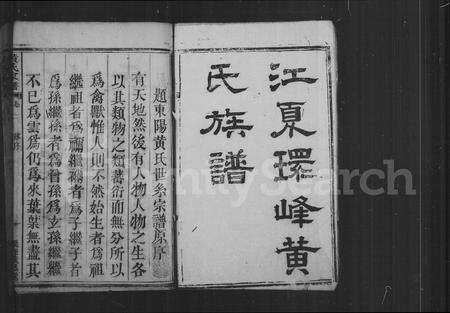 江夏環峰黃
氏族譜
題東陽黃氏世系宗譜原序
有天地然後有人物人物之生各
以其類物之類蕃衍而無分所以
為禽獸惟人則不然始生者為祖
繼祖者為禰繼禰者為子繼子者
為孫繼孫者為曾孫為玄孫繼繼
不已為雲為仍為來葉葉無盡其
FamilySearch